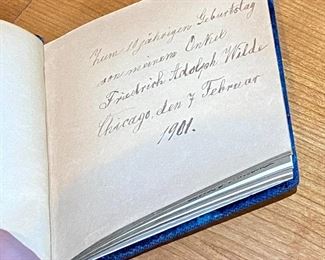 Zum 11jährigen Geburtstag
von meinem Onkel
Friedrich Adolph Wilde
Chicago, den 7 Februar
1901.